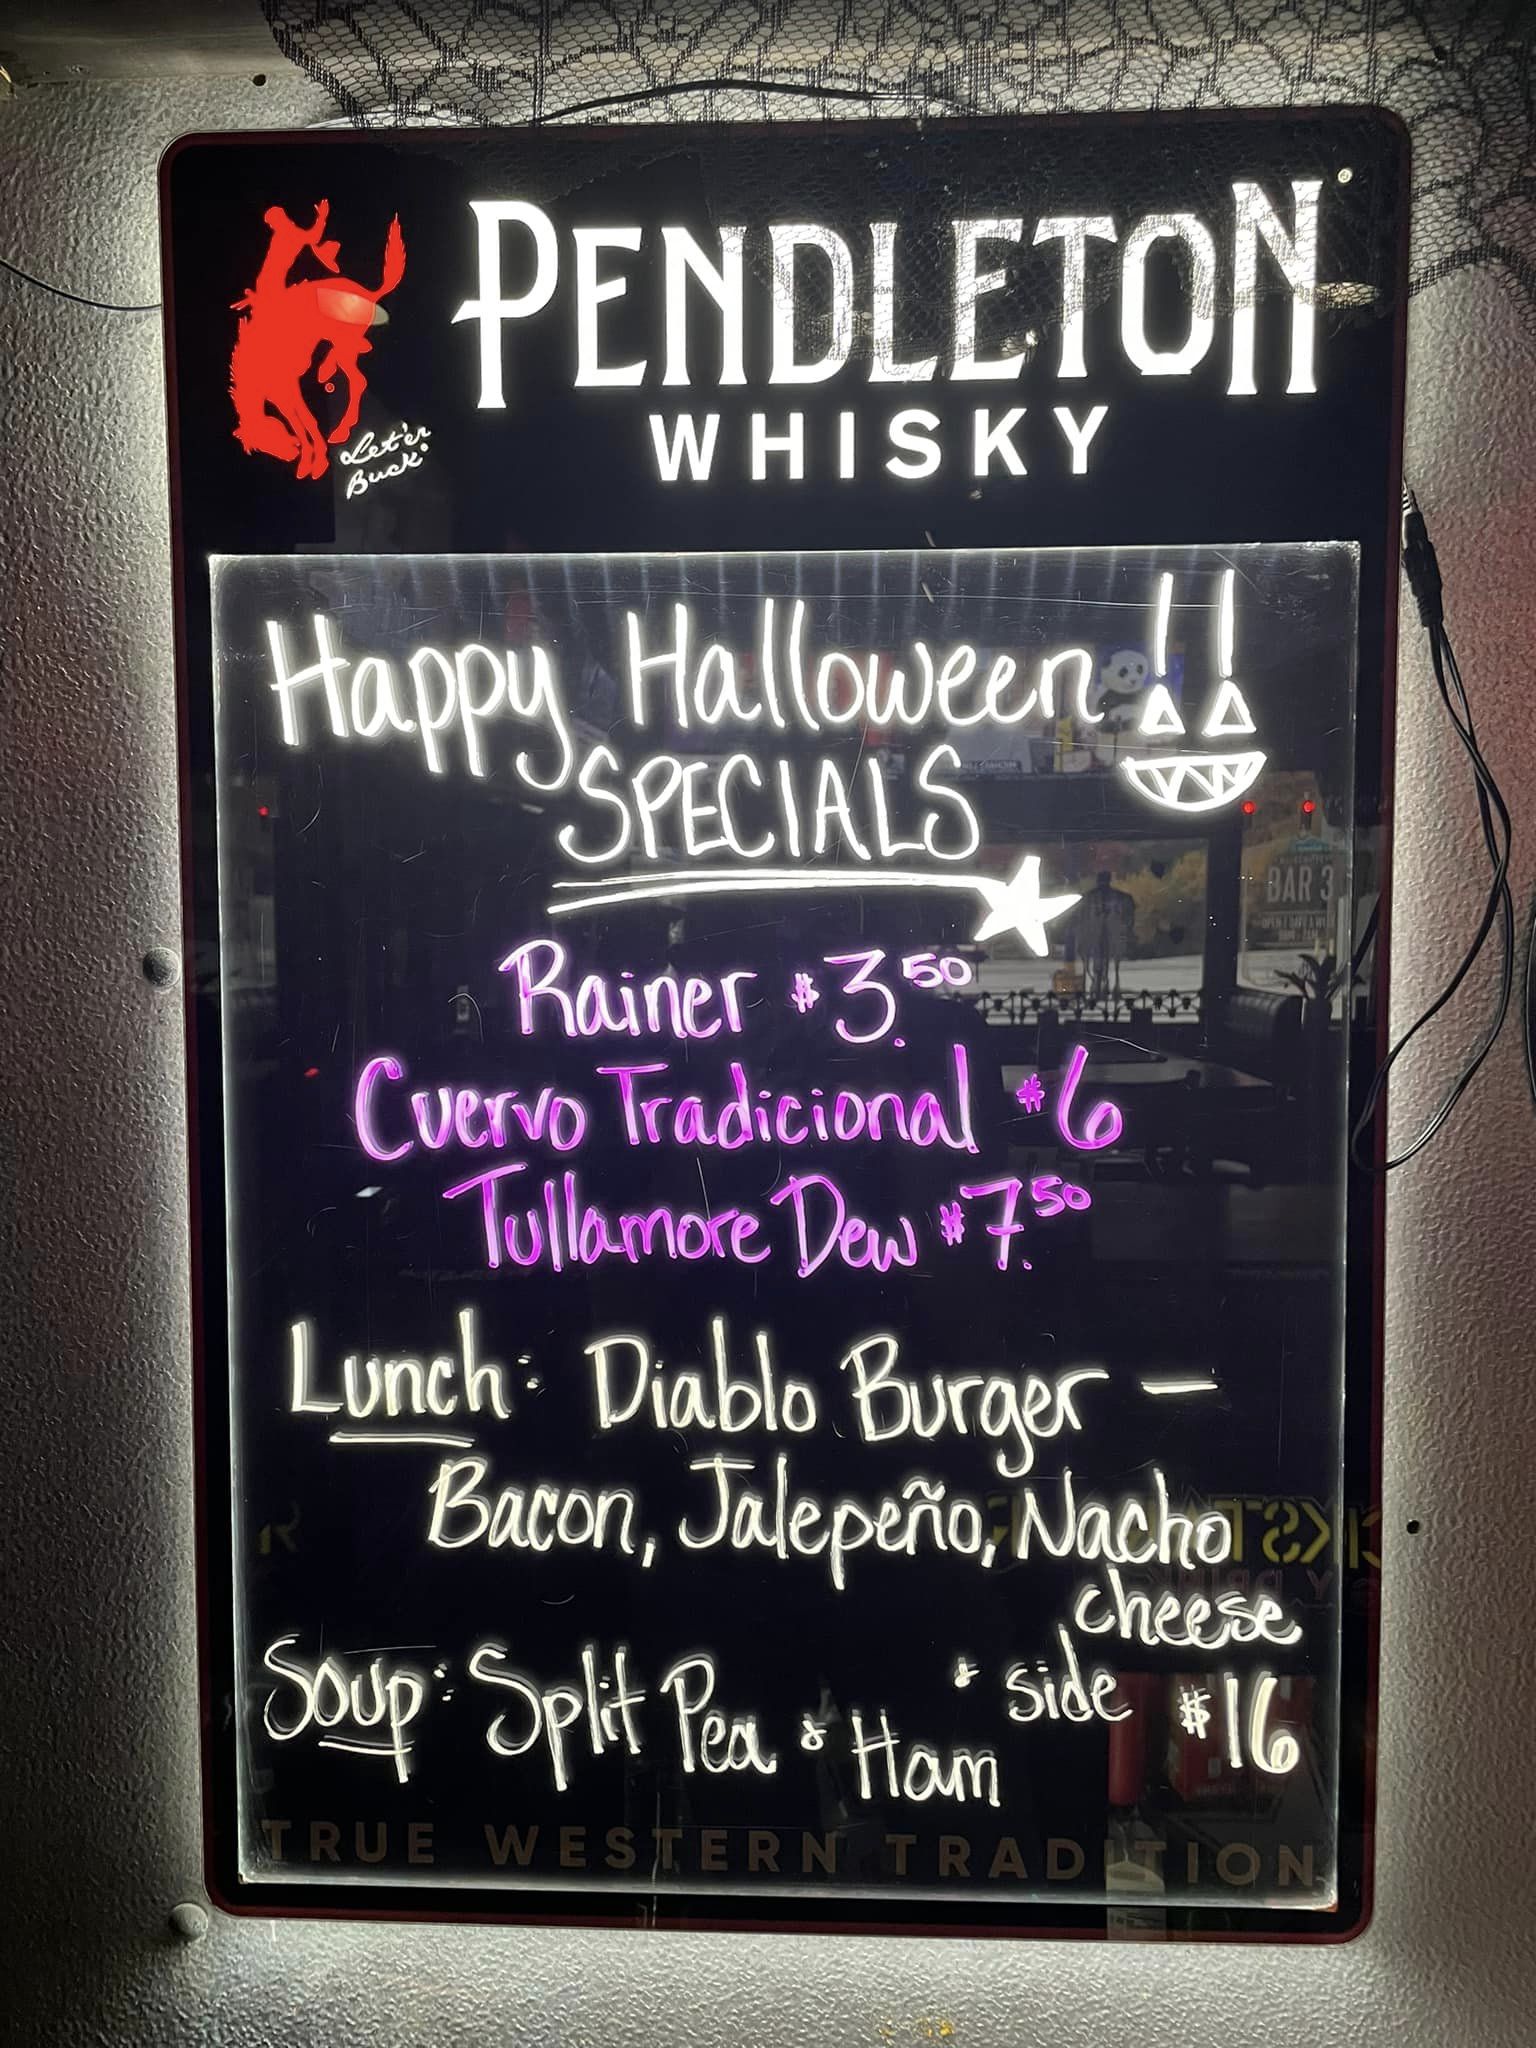 PENDLETON®
WHISKY
Let'er
Buck®
Happy Halloween !!
SPECIALS
Rainer $3.50
Cuervo Tradicional $6
Tullamore Dew $7.50
Lunch: Diablo Burger —
Bacon, Jalepeño, Nacho
cheese
& side $16
Soup: Split Pea & Ham
TRUE WESTERN TRADITION
BAR 3